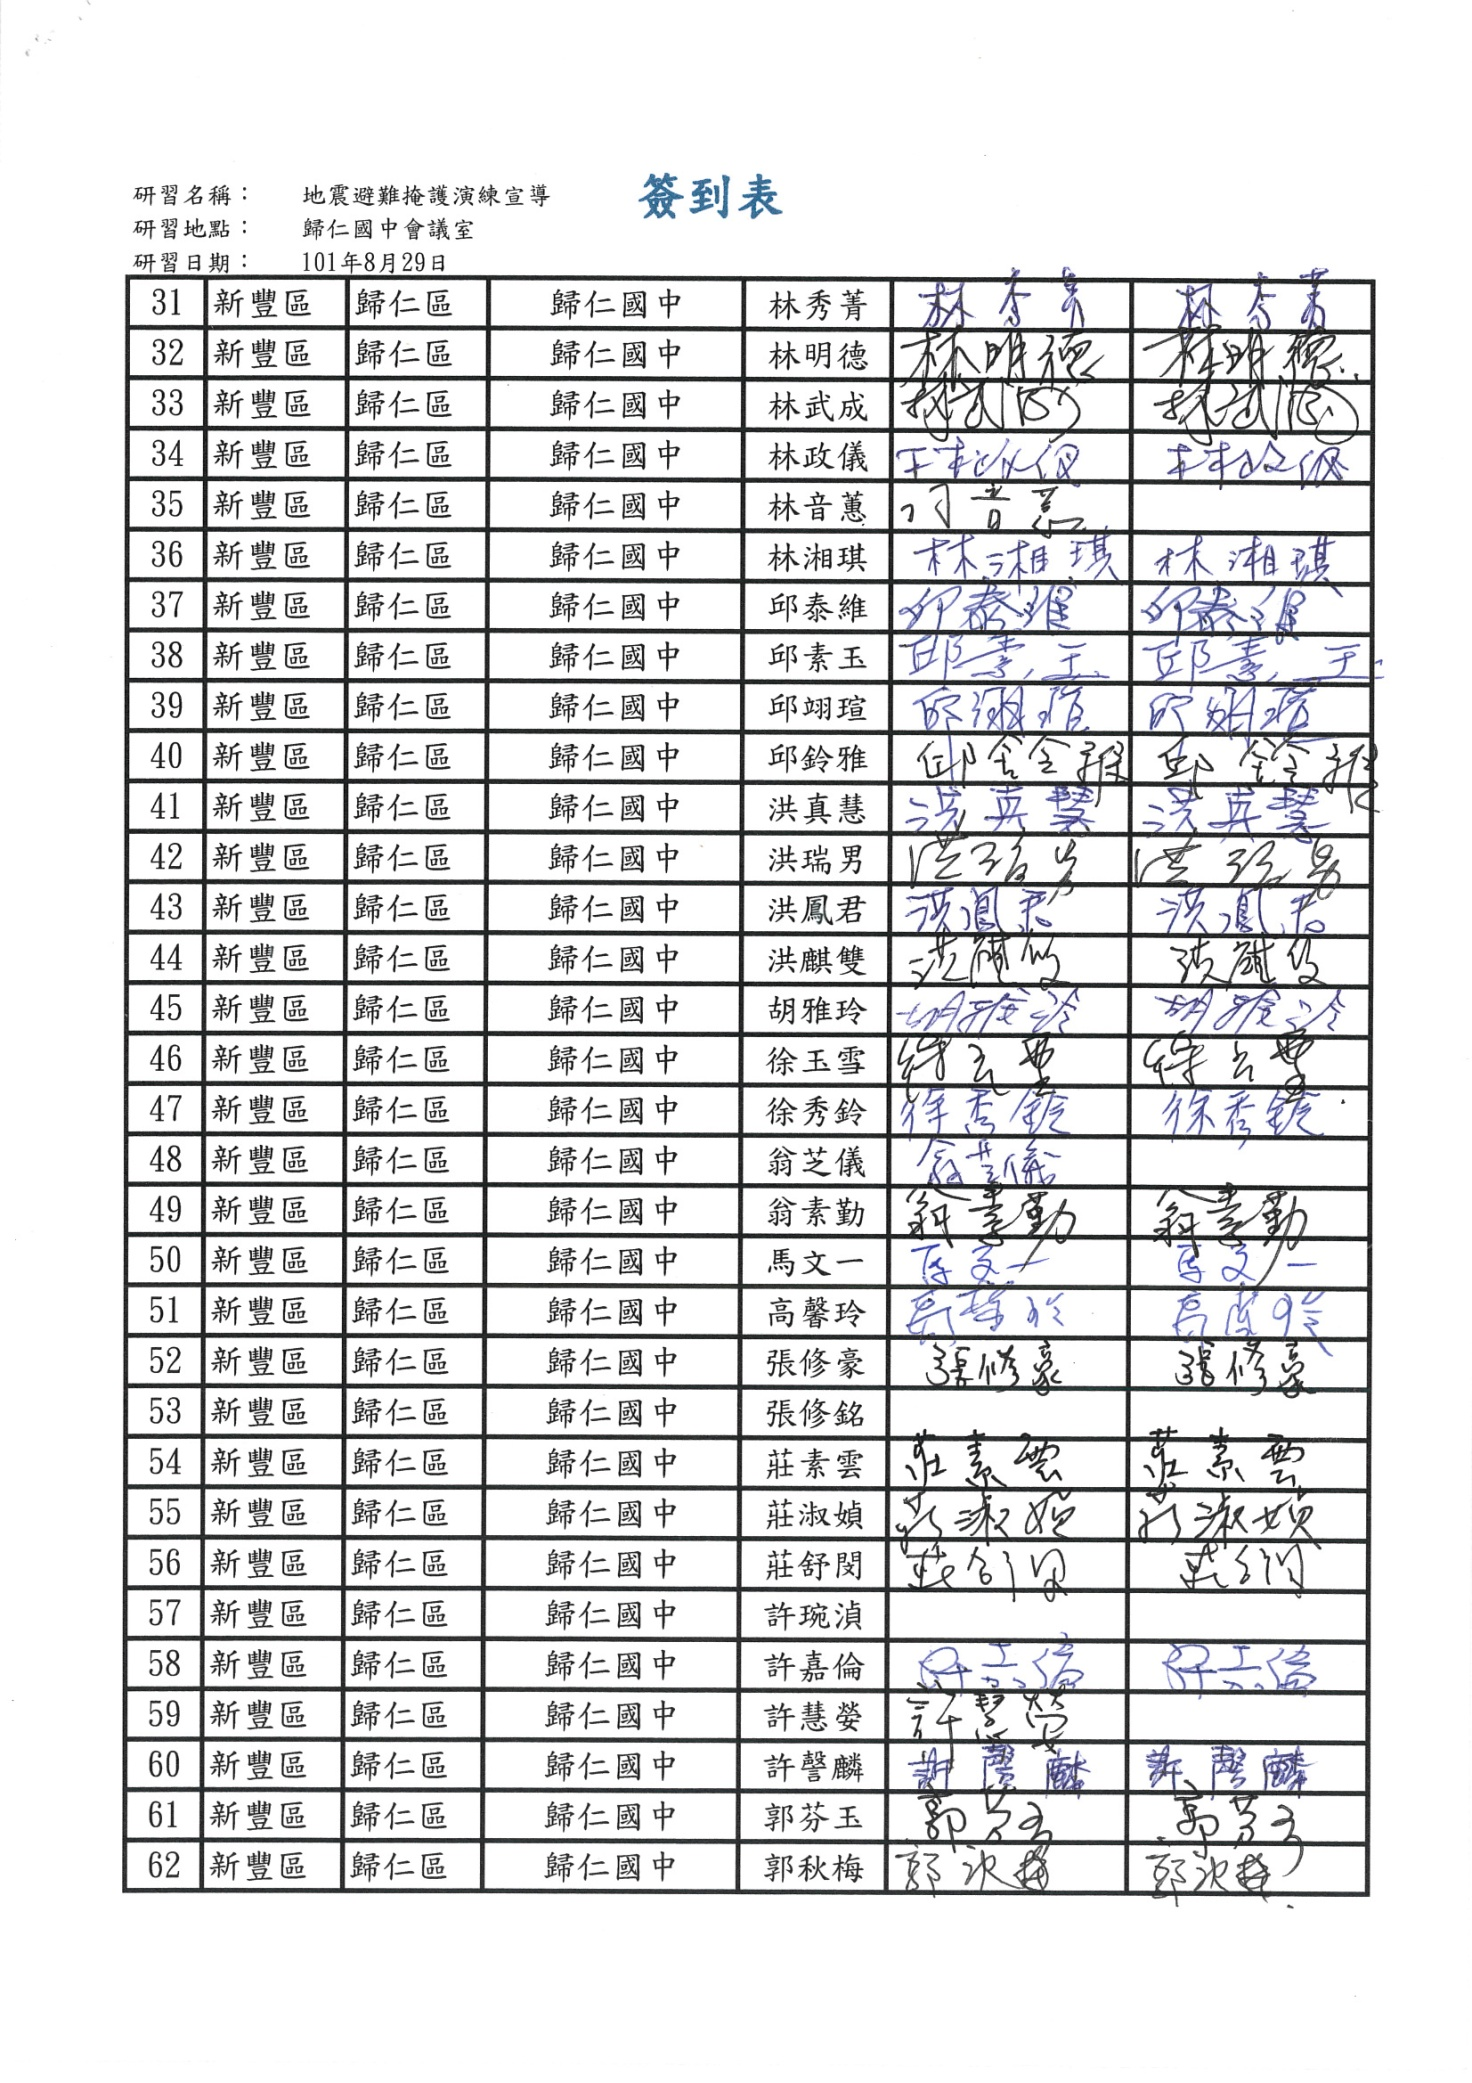 簽到表
研習名稱： 地震避難掩護演練宣導
研習地點： 歸仁國中會議室
研習日期： 101年8月29日
31 新豐區 歸仁區 歸仁國中 林秀菁 林秀菁 林秀菁
32 新豐區 歸仁區 歸仁國中 林明德 林明德 林明德
33 新豐區 歸仁區 歸仁國中 林武成 林武成 林武成
34 新豐區 歸仁區 歸仁國中 林政儀 林政儀 林政儀
35 新豐區 歸仁區 歸仁國中 林音蕙 林音蕙
36 新豐區 歸仁區 歸仁國中 林湘琪 林湘琪 林湘琪
37 新豐區 歸仁區 歸仁國中 邱泰維 邱泰維 邱泰維
38 新豐區 歸仁區 歸仁國中 邱素玉 邱素玉 邱素玉
39 新豐區 歸仁區 歸仁國中 邱翊瑄 邱翊瑄 邱翊瑄
40 新豐區 歸仁區 歸仁國中 邱鈴雅 邱鈴雅 邱鈴雅
41 新豐區 歸仁區 歸仁國中 洪真慧 洪真慧 洪真慧
42 新豐區 歸仁區 歸仁國中 洪瑞男 洪瑞男 洪瑞男
43 新豐區 歸仁區 歸仁國中 洪鳳君 洪鳳君 洪鳳君
44 新豐區 歸仁區 歸仁國中 洪麒雙 洪麒双 洪麒双
45 新豐區 歸仁區 歸仁國中 胡雅玲 胡雅玲 胡雅玲
46 新豐區 歸仁區 歸仁國中 徐玉雪 徐玉雪 徐玉雪
47 新豐區 歸仁區 歸仁國中 徐秀鈴 徐秀鈴 徐秀鈴
48 新豐區 歸仁區 歸仁國中 翁芝儀 翁芝儀
49 新豐區 歸仁區 歸仁國中 翁素勤 翁素勤 翁素勤
50 新豐區 歸仁區 歸仁國中 馬文一 馬文一 馬文一
51 新豐區 歸仁區 歸仁國中 高馨玲 高馨玲 高馨玲
52 新豐區 歸仁區 歸仁國中 張修豪 張修豪 張修豪
53 新豐區 歸仁區 歸仁國中 張修銘
54 新豐區 歸仁區 歸仁國中 莊素雲 莊素雲 莊素雲
55 新豐區 歸仁區 歸仁國中 莊淑媜 莊淑媜 莊淑媜
56 新豐區 歸仁區 歸仁國中 莊舒閔 莊舒閔 莊舒閔
57 新豐區 歸仁區 歸仁國中 許琬湞
58 新豐區 歸仁區 歸仁國中 許嘉倫 許嘉倫 許嘉倫
59 新豐區 歸仁區 歸仁國中 許慧嫈 許慧嫈
60 新豐區 歸仁區 歸仁國中 許謦麟 許謦麟 許謦麟
61 新豐區 歸仁區 歸仁國中 郭芬玉 郭芬玉 郭芬玉
62 新豐區 歸仁區 歸仁國中 郭秋梅 郭秋梅 郭秋梅